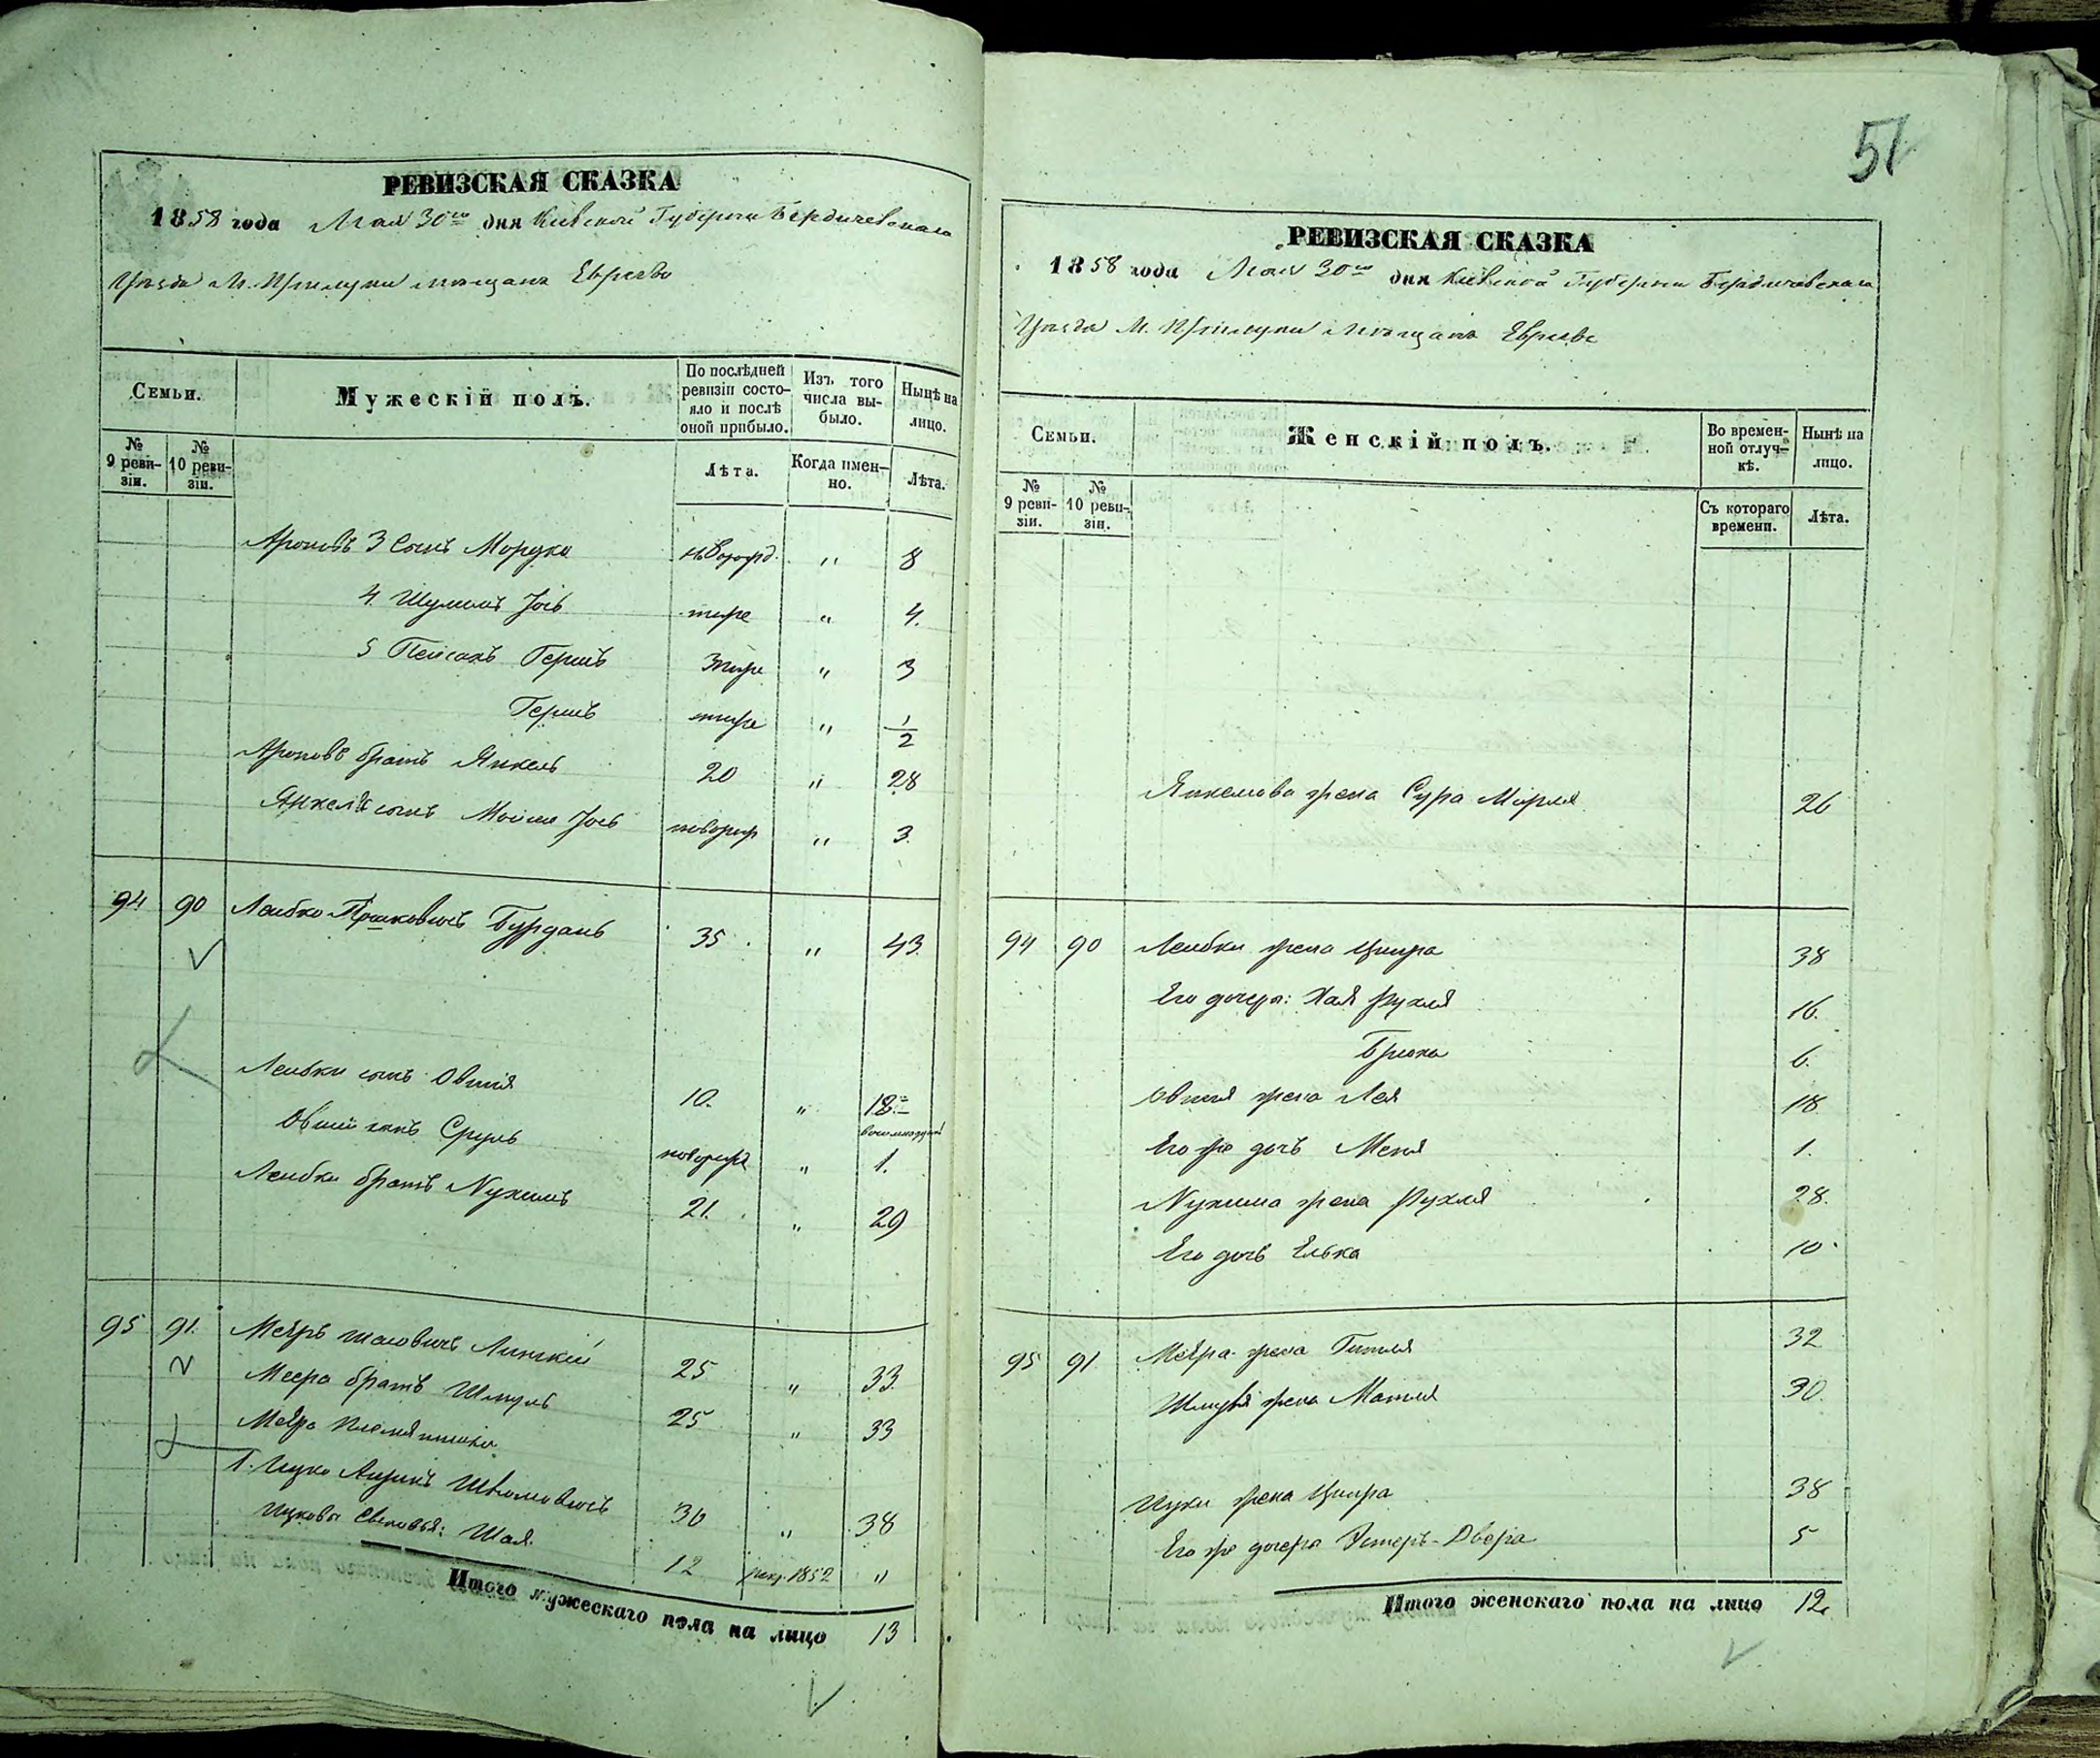 РЕВИЗСКАЯ СКАЗКА
1858 года Мая 30го дня Киевской Губернии Бердичевскаго
Уезда М. Прилуки мещанъ Евреевъ
Семьи.
Мужескій полъ.
По послѣдней ревизіи состояло и послѣ оной прибыло.
Изъ того числа выбыло.
Нынѣ на лицо.
№ 9 ревизіи.
№ 10 ревизіи.
Лѣта.
Когда именно.
Лѣта.
Ароновъ 3 сынъ Мордко новорожд. " 8
4. Шулимъ Іосъ тоже " 4.
5 Пейсахъ Гершъ тоже " 3
Гершъ тоже " 1/2
Ароновъ братъ Янкель 20 " 28
Янкеля сынъ Мойше Іосъ новорож " 3.
94 90 Лейбко Бурданъ 35. " 43.
Лейбки сынъ Овшія 10. " 18.
восемнадцать
Овшіи сынъ Сруль новорожд " 1.
Лейбки братъ Нухимъ 21. " 29
95 91. Мееръ Шаевичъ Линскій 25 " 33.
Меера братъ Шмуль 25 " 33
Меера племянники
1. Ицко Айзикъ 30 " 38
Ицковы сыновья: Шая. 12 рекр. 1852 "
Итого мужескаго пола на лицо 13
51
РЕВИЗСКАЯ СКАЗКА
1858 года Мая 30го дня Киевской Губернии Бердичевскаго
Уезда М. Прилуки Мещанъ Евреевъ
Семьи.
Женскій полъ.
Во временной отлучкѣ.
Нынѣ на лицо.
№ 9 ревизіи.
№ 10 ревизіи.
Съ котораго времени.
Лѣта.
Янкелова жена Сура Мирля 26
94 90 Лейбки жена Ципра 38
Его дочери: Хая Рухля 16.
Бриана 6.
Овшія жена Лея 18
Его же дочь Меня 1.
Нухима жена Рухля 28.
Его дочь Елька 10
95 91 Меера жена Гитля 32
Шмуля жена Матля 30.
Ицки жена Ципра 38
Его же дочери Эстеръ-Двера 5
Итого женскаго пола на лицо 12.